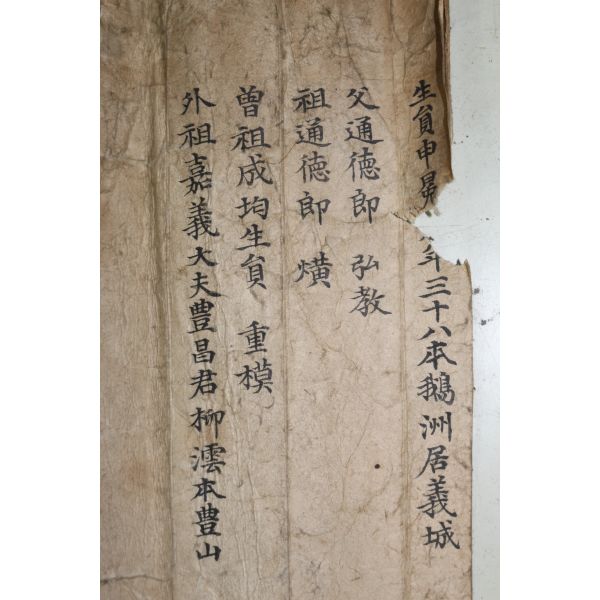 生貟申年三十八本鵝洲居義城
父通徳郎 弘教
祖通徳郎 熿
曽祖成均生貟 重模
外祖嘉義大夫豊昌君柳澐本豊山